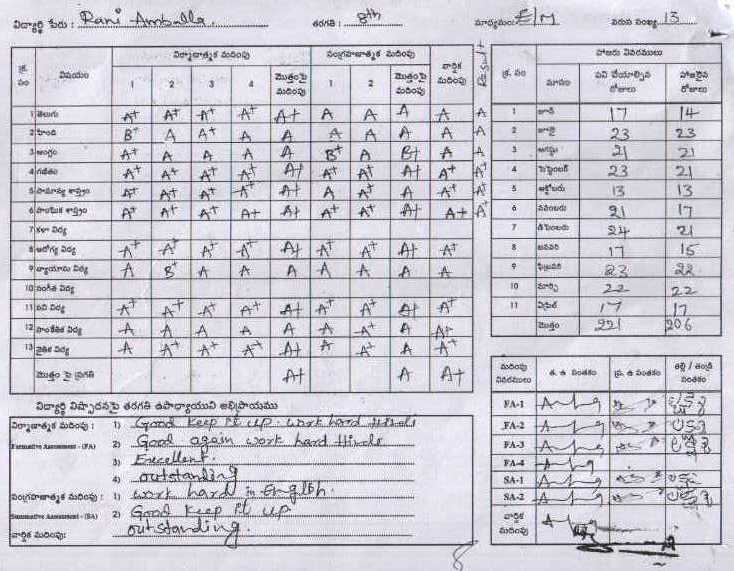 విద్యార్థి పేరు : Rani Ambulla తరగతి : 8th మాధ్యమం: E/M వరుస సంఖ్య 13
క్ర. సం విషయం నిర్మాణాత్మక మదింపు సంగ్రహణాత్మక మదింపు వార్షిక మదింపు
1 2 3 4 మొత్తంపై మదింపు 1 2 మొత్తంపై మదింపు
1 తెలుగు A+ A+ A+ A+ A+ A A A A A
2 హింది B+ A A+ A A A A A A A
3 ఆంగ్లం A+ A A A A B+ A B+ A A
4 గణితం A+ A+ A+ A+ A+ A+ A+ A+ A+ A+
5 సామాన్య శాస్త్రం A+ A+ A+ A+ A+ A A+ A A+ A+
6 సాంఘిక శాస్త్రం A+ A+ A+ A+ A+ A+ A+ A+ A+ A+
7 కళా విద్య
8 ఆరోగ్య విద్య A+ A+ A+ A+ A+ A+ A+ A+ A+
9 వ్యాయామ విద్య A B+ A A A A A A A
10 సంగీత విద్య
11 పని విద్య A+ A+ A+ A+ A+ A+ A+ A+ A+
12 సాంకేతిక విద్య A A A A A A A+ A A+
13 నైతిక విద్య A A+ A+ A+ A+ A A+ A A+
మొత్తం పై ప్రగతి A+ A A+
హాజరు వివరములు
క్ర. సం మాసం పని చేయాల్సిన రోజులు హాజరైన రోజులు
1 జూన్ 17 14
2 జూలై 23 23
3 ఆగష్టు 21 21
4 సెప్టెంబర్ 23 21
5 అక్టోబరు 13 13
6 నవంబరు 21 17
7 డిసెంబరు 24 21
8 జనవరి 17 15
9 ఫిబ్రవరి 23 22
10 మార్చి 22 22
11 ఏప్రిల్ 17 17
మొత్తం 221 206
మదింపు వివరములు త. ఉ సంతకం ప్ర. ఉ సంతకం తల్లి / తండ్రి సంతకం
FA-1
FA-2
FA-3
FA-4
SA-1
SA-2
వార్షిక మదింపు
విద్యార్థి నిష్పాదనపై తరగతి ఉపాధ్యాయుని అభిప్రాయము
నిర్మాణాత్మక మదింపు : 1) Good keep it up. work hard Hindi
Formative Assessment - (FA) 2) Good again work hard Hindi
3) Excellent.
4) outstanding
సంగ్రహణాత్మక మదింపు : 1) work hard in English.
Summative Assessment - (SA) 2) Good keep it up
వార్షిక మదింపు: outstanding.